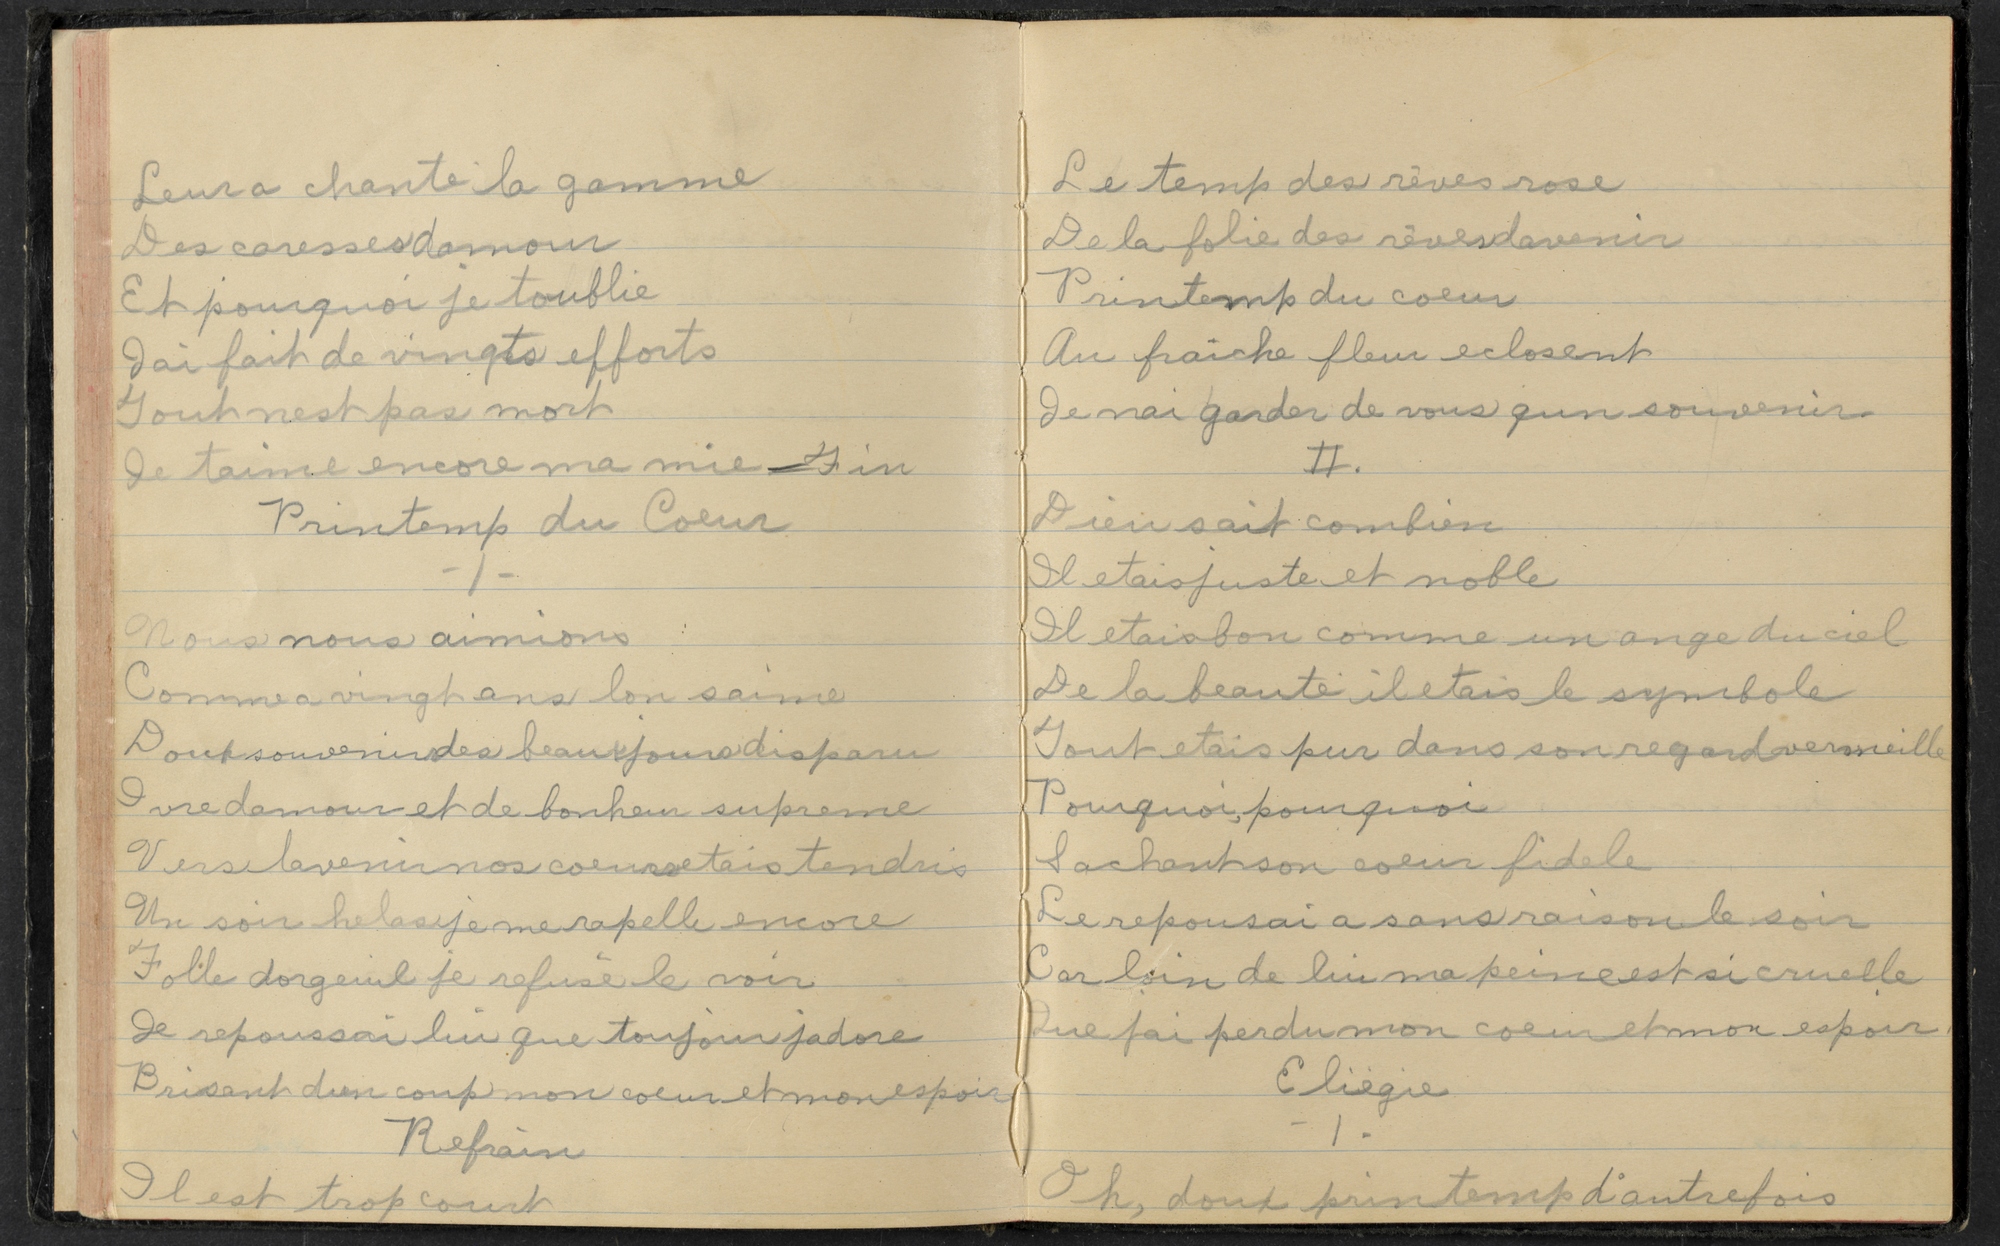 Leur a chanté la gamme
Des caresses damour
Et pourquoi je toublie
Jai fait de vingts efforts
Tout nest pas mort
Je taime encore ma mie - Fin
Printemp du Coeur
- 1 -
Nous nous aimions
Comme a vingt ans lon saime
Doux souvenir des beaux jours disparu
Ivre damour et de bonheur supreme
Vers lavenir nos coeurs etais tendris
Un soir helas je me rapelle encore
Folle dorgeuil je refusé le voir
Je repoussai lui que toujour jadore
Brisant dun coup mon coeur et mon espoir
Refrain
Il est trop court
Le temp des rêves rose
De la folie des rêves davenir
Printemp du coeur
Au fraîche fleur eclosent
Je nai garder de vous qun souvenir
II.
Dieu sait combien
Il etais juste et noble
Il etais bon comme un ange du ciel
De la beauté il etais le symbole
Tout etais pur dans son regard vermeille
Pourquoi, pourquoi
Sachant son coeur fidele
Le repousai a sans raison le soir
Car loin de lui ma peine est si cruelle
Que jai perdu mon coeur et mon espoir
Eliégie
- 1 -
Oh, doux printemp d'autrefois